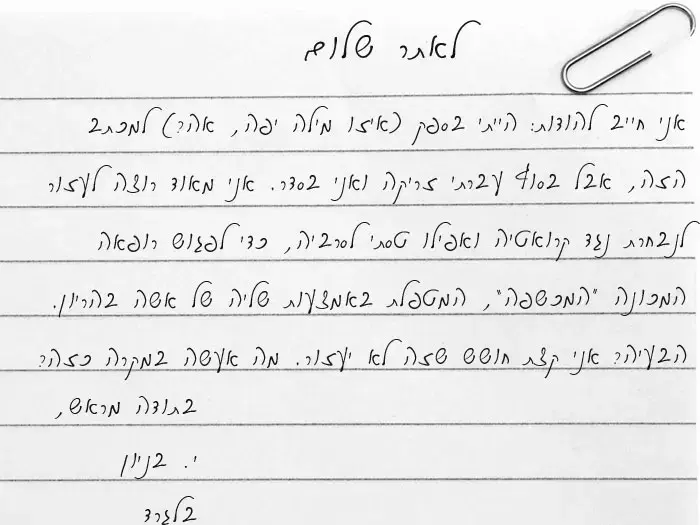 לאתר שלום
אני חייב להודות: הייתי בספק (איזו מילה יפה, אה?) למכתב
הזה, אבל בסוף עברתי זריקה ואני בסדר. אני מאוד רוצה לעזור
לנבחרת נגד קרואטיה ואפילו טסתי לסרביה, כדי לפגוש רופאה
המכונה "המכשפה", המטפלת באמצעות שליה של אשה בהריון.
הבעיה? אני קצת חושש שזה לא יעזור. מה אעשה במקרה כזה?
בתודה מראש,
י. בניון
בלגרד